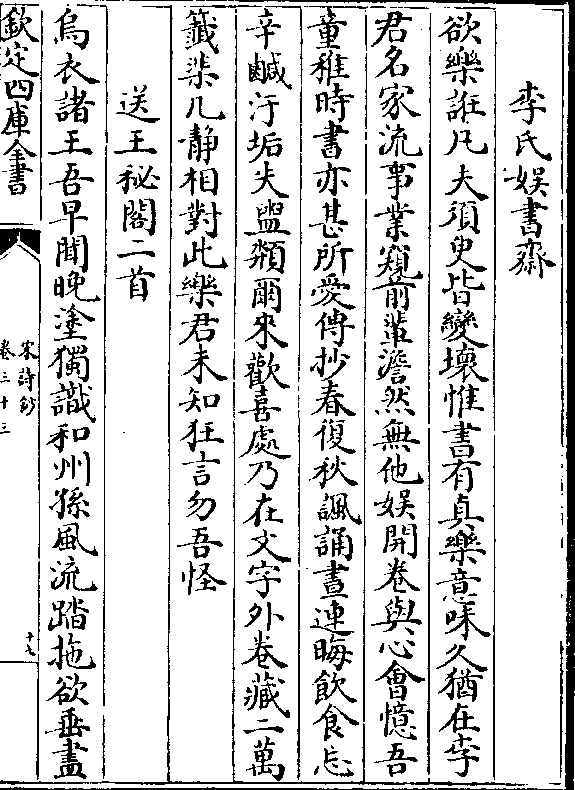 李氏娱書齋
欲樂誑凡夫須臾皆變壞惟書有真樂意味久猶在李
君名家流事業窺前輩澹然無他娱開卷與心會憶吾
童稚時書亦甚所愛傳抄春復秋諷誦晝連晦飲食忘
辛鹹汙垢失盥頮爾來歡喜處乃在文字外卷藏二萬
籤棐几静相對此樂君未知狂言勿吾怪
送王秘閣二首
烏衣諸王吾早聞晚塗獨識和州孫風流踏拖欲垂盡
欽定四庫全書
宋詩鈔
卷三十三
十九